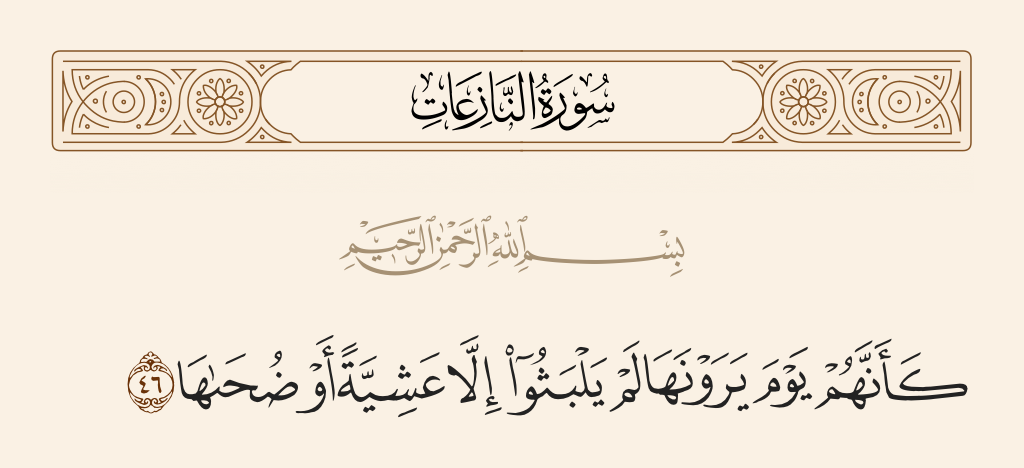 سُورَةُ النَّازِعَاتِ
بِسْمِ ٱللَّهِ ٱلرَّحْمَٰنِ ٱلرَّحِيمِ
كَأَنَّهُمْ يَوْمَ يَرَوْنَهَا لَمْ يَلْبَثُوٓا۟ إِلَّا عَشِيَّةً أَوْ ضُحَىٰهَا ٤٦